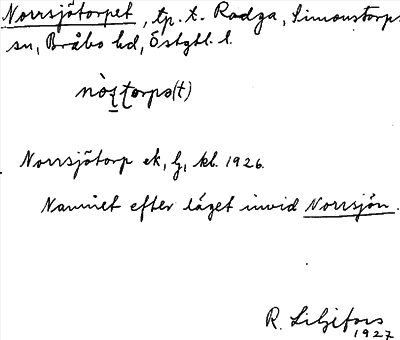 Norrsjötorpet, tp. t. Rodga, Simonstorps
sn, Bråbo hd, Östgtl. l.
Norrsjötorp ek, hj, kbl. 1926.
Namnet efter läget invid Norrsjön.
R. Liljefors
1927